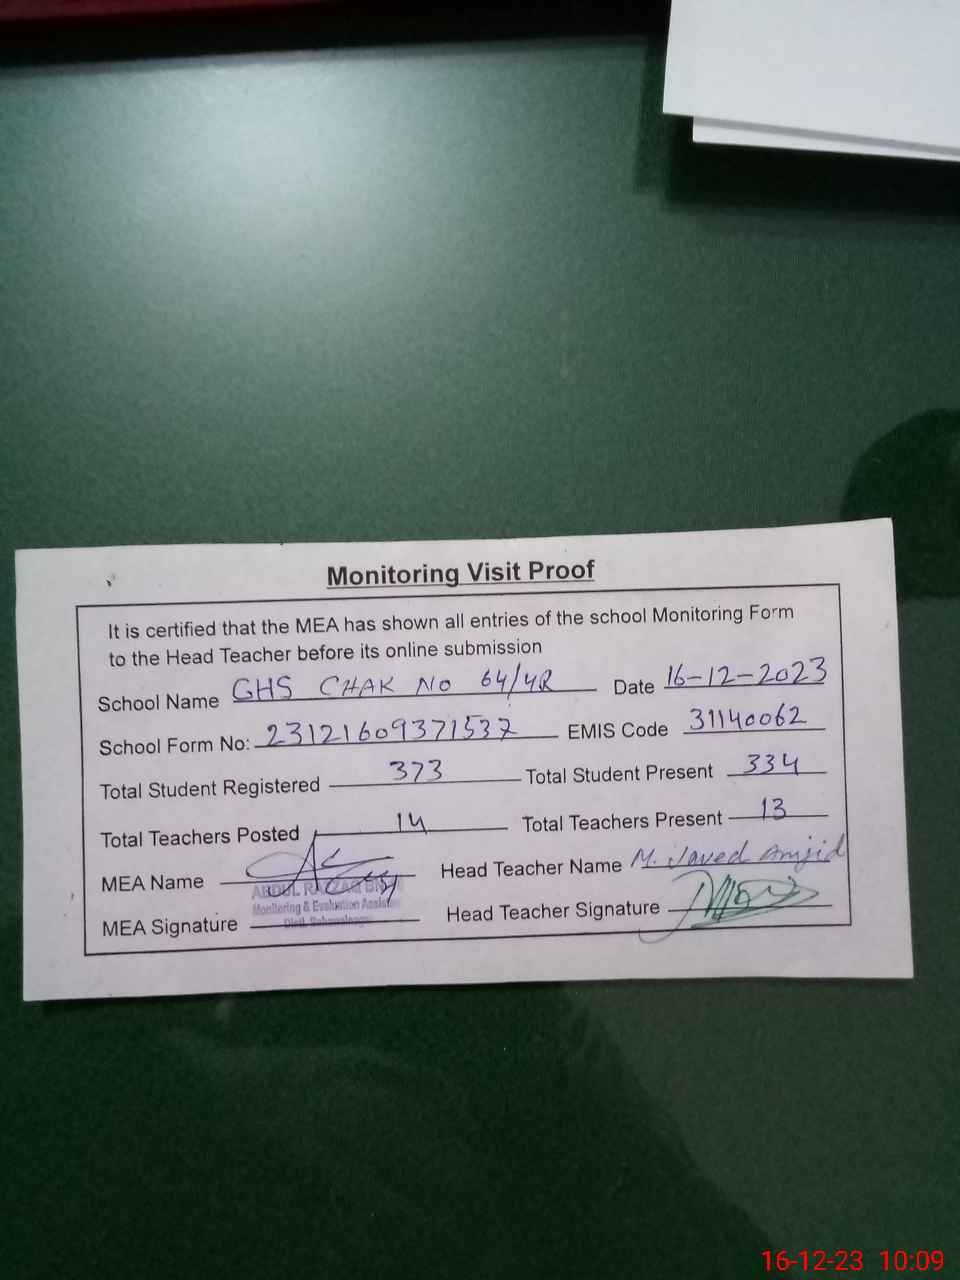 Monitoring Visit Proof
It is certified that the MEA has shown all entries of the school Monitoring Form
to the Head Teacher before its online submission
School Name GHS CHAK NO 64/4R Date 16-12-2023
School Form No: 23121609371537 EMIS Code 31140062
Total Student Registered 373 Total Student Present 334
Total Teachers Posted 14 Total Teachers Present 13
MEA Name Head Teacher Name M. Javed Amjid
ABDUL RAZZAQ
Monitoring & Evaluation Assistant
MEA Signature Head Teacher Signature
Distt.
16-12-23 10:09